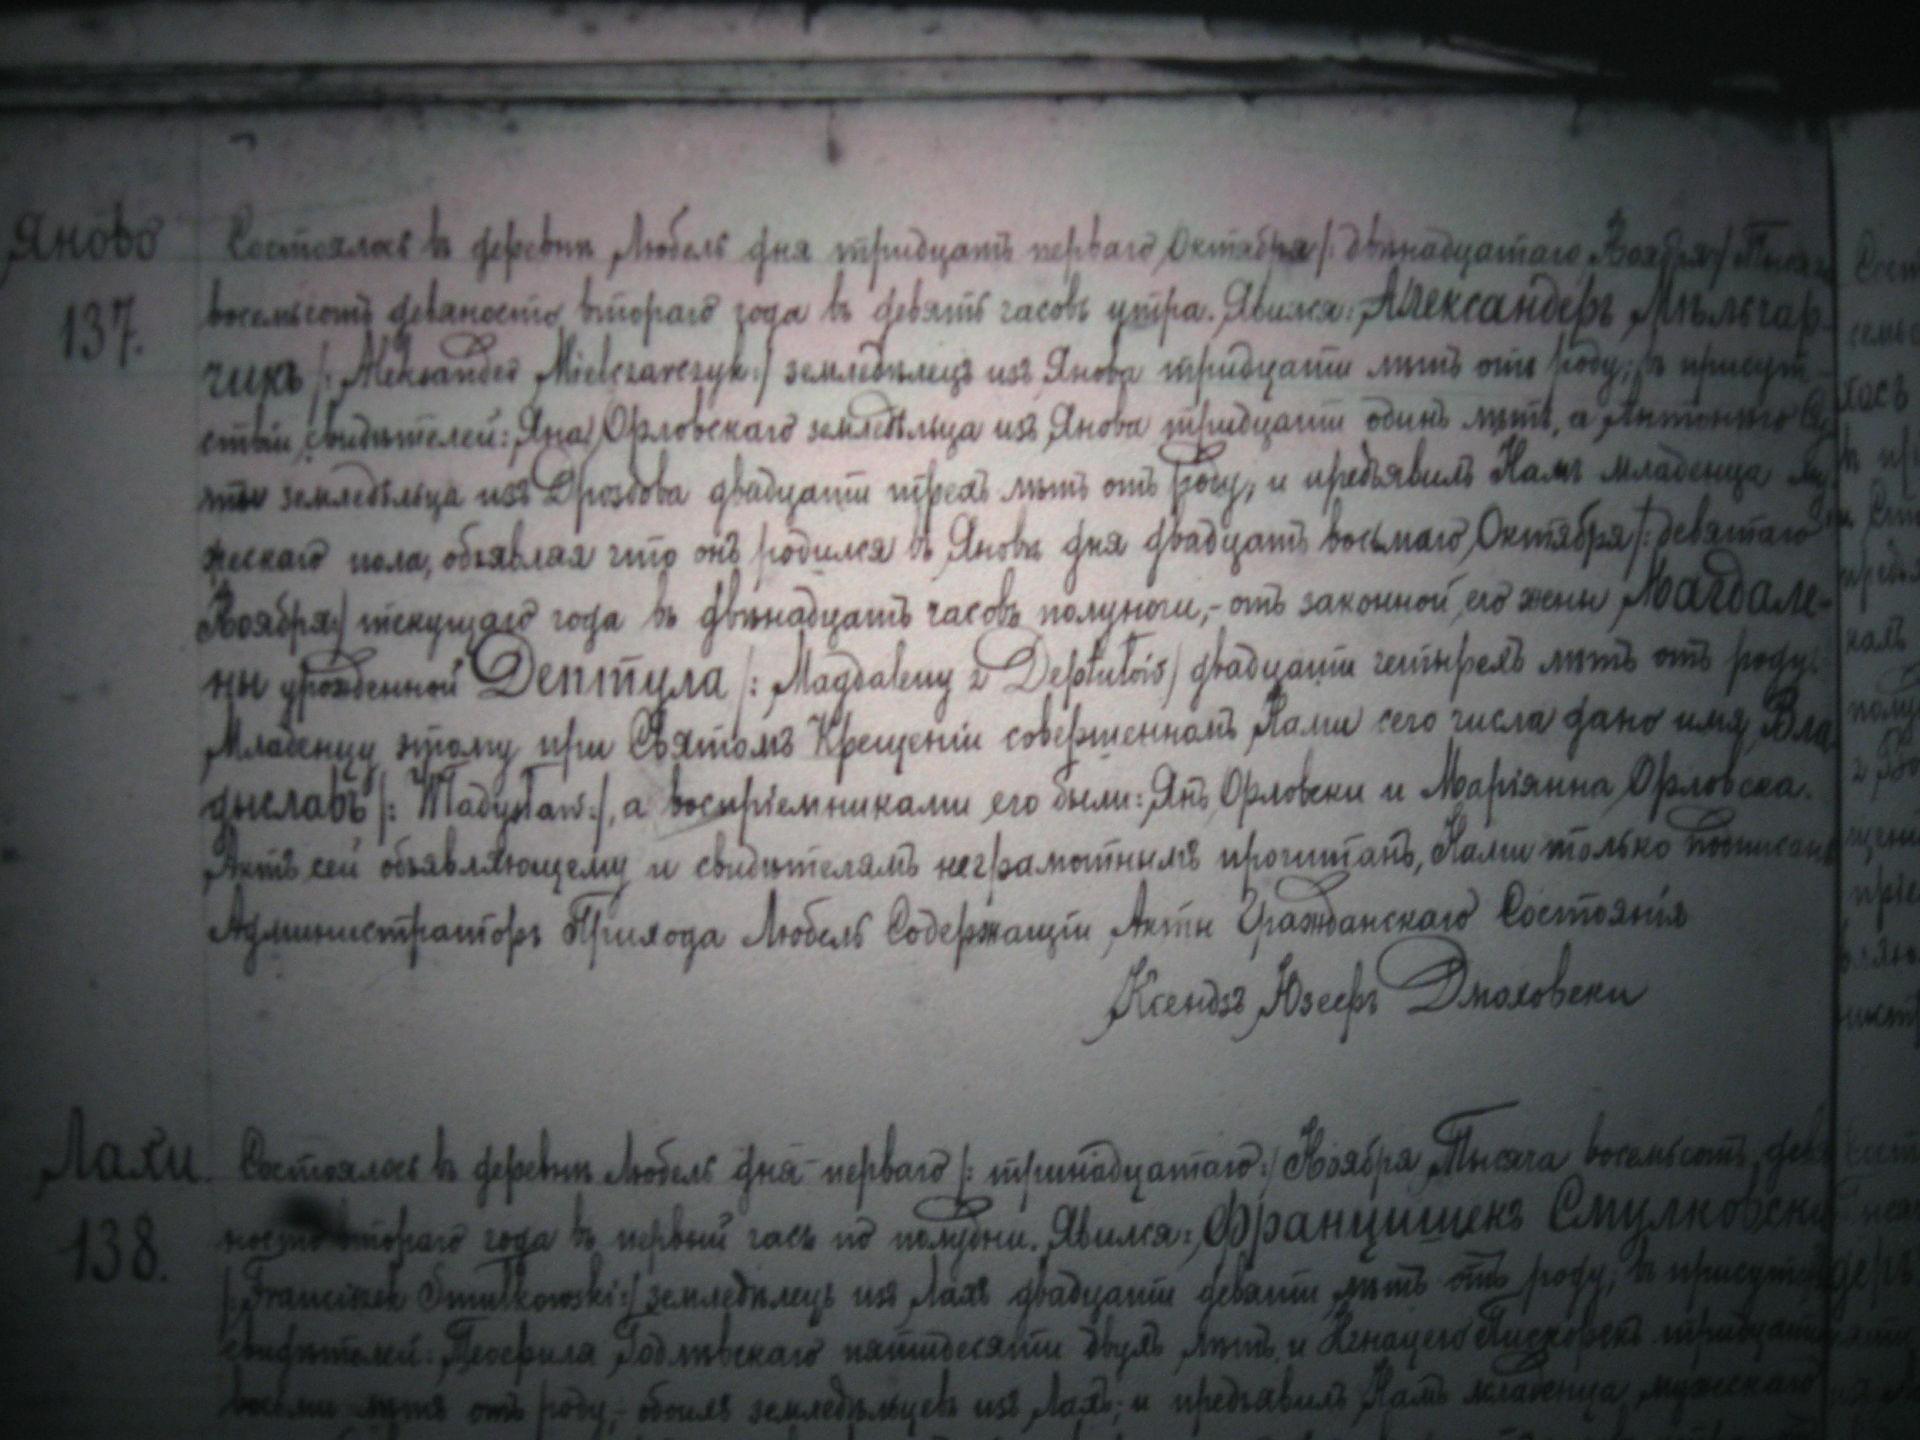 Яново
137.
Состоялось въ деревнѣ Любель дня тридцать перваго Октября /: двѣнадцатаго Ноября / Тысяча
восемьсотъ девяносто втораго года въ девять часовъ утра. Явился: Александеръ Мѣльчар-
чикъ /: Aleksander Mielczarczyk :/ земледѣлецъ изъ Янова тридцати лѣтъ отъ роду; въ присут-
ствіи свидѣтелей: Яна Орловскаго земледѣльца изъ Янова тридцати одинъ лѣтъ, а Антонего
земледѣльца изъ Дроздова двадцати трехъ лѣтъ отъ роду, и предъявилъ Намъ младенца му-
жескаго пола, объявляя что онъ родился въ Яновѣ дня двадцать восьмаго Октября /: девятаго
Ноября :/ текущаго года въ двѣнадцать часовъ полуночи, - отъ законной его жены Магдале-
ны урожденной Дептула /: Magdaleny z Deptułów / двадцати четырехъ лѣтъ отъ роду.
Младенцу этому при Святомъ Крещеніи совершенномъ Нами сего числа дано имя Вла-
дыславъ /: Władysław :/, а воспріемниками его были: Янъ Орловски и Маріянна Орловска.
Актъ сей объявляющему и свидѣтелямъ неграмотнымъ прочитанъ, Нами только подписанъ
Администраторъ Прихода Любель Содержащій Акты Гражданскаго Состоянія
Ксендзъ Юзефъ Дмоховски
Лахи.
138.
Состоялось въ деревнѣ Любель дня перваго /: тринадцатаго :/ Ноября Тысяча восемьсотъ девя
носто втораго года въ первый часъ по полудни. Явился: Францишекъ Смулковски
/: Franciszek Smulkowski :/ земледѣлецъ изъ Лахъ двадцати девяти лѣтъ отъ роду, въ присутст
свидѣтелей: Теофила Годлевскаго пятидесяти двухъ лѣтъ и Игнацего тридцати
восьми лѣтъ отъ роду, - обоихъ земледѣльцевъ изъ Лахъ; и предъявилъ Намъ младенца мужескаго